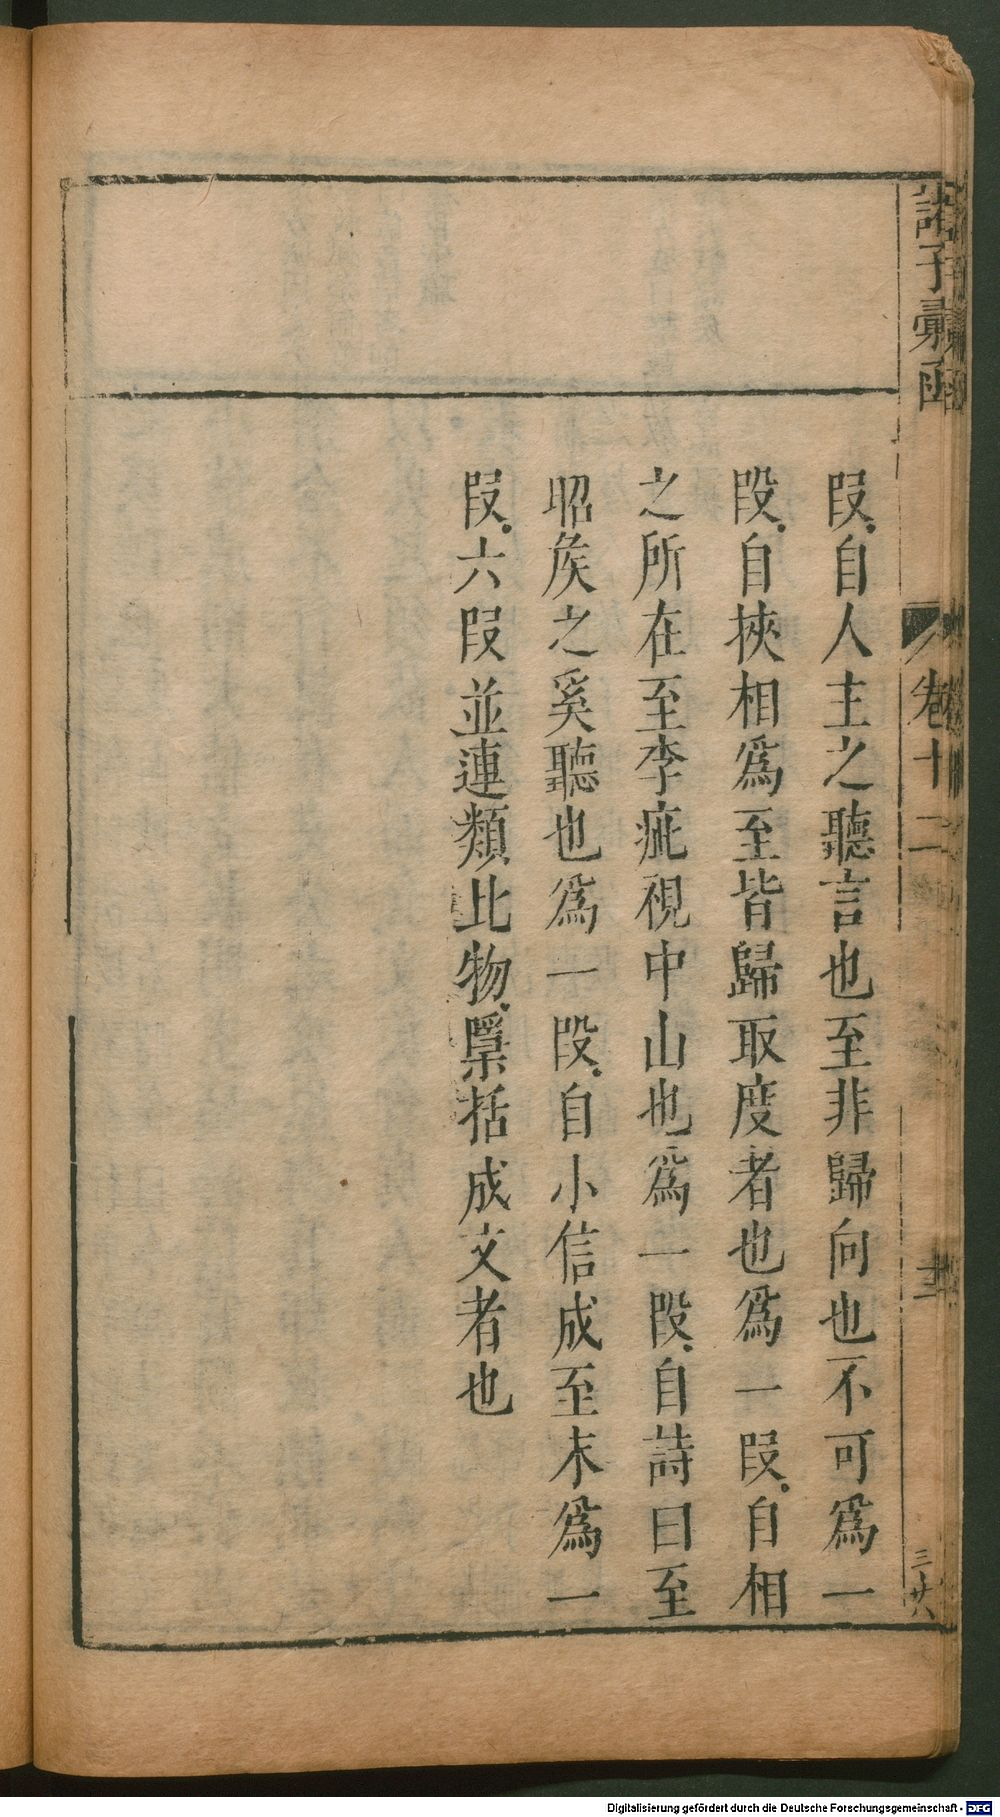 諸子彙函
卷十二
三
三廿八
段自人主之聽言也至非歸向也不可爲一
段自挾相爲至皆歸取度者也爲一段自相
之所在至李疵視中山也爲一段自詩曰至
昭矦之奚聽也爲一段自小信成至末爲一
段六段並連類比物檃括成文者也
Digitalisierung gefördert durch die Deutsche Forschungsgemeinschaft - DFG